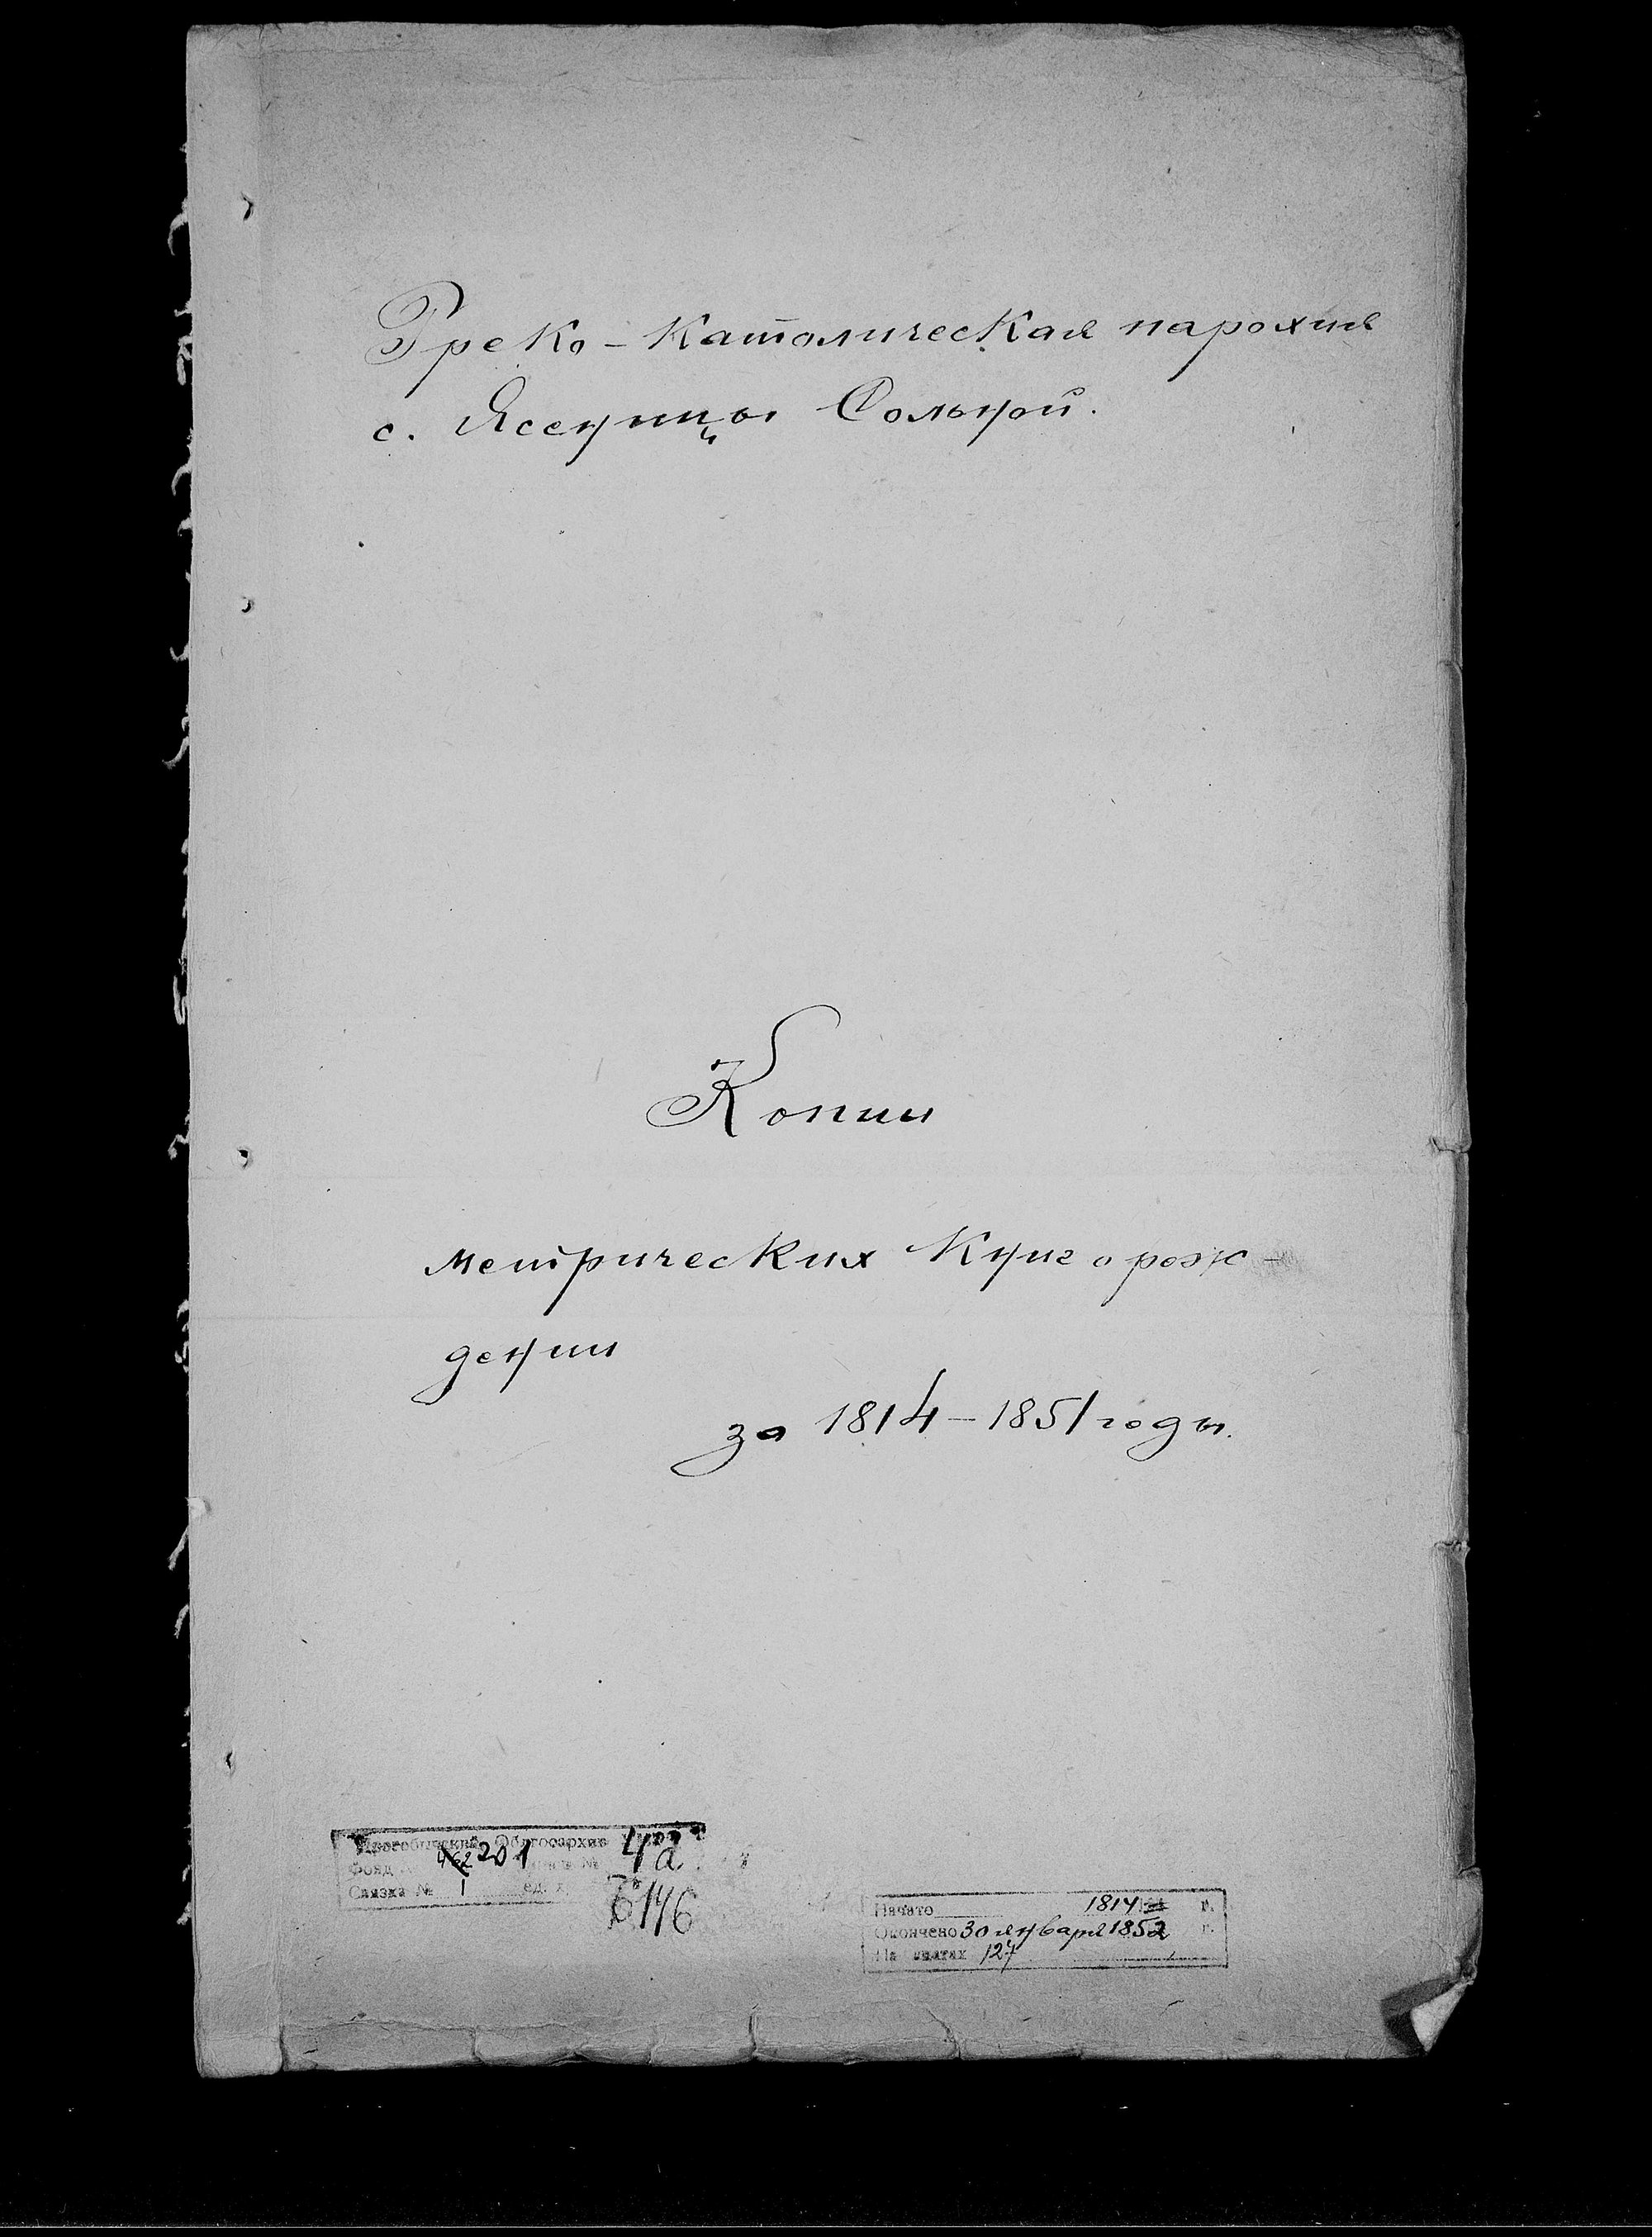 Греко-Католическая парохия
с. Ясеницы Сольной.
Копии
метрических Книг о рож-
дении
за 1814-1851 годы.
Дрогобычский Облгосархив
Фонд 201 4а
Связка № 1 ед. х.
146
Начато 1814 г.
Окончено 30 января 1852 г.
На листах 127